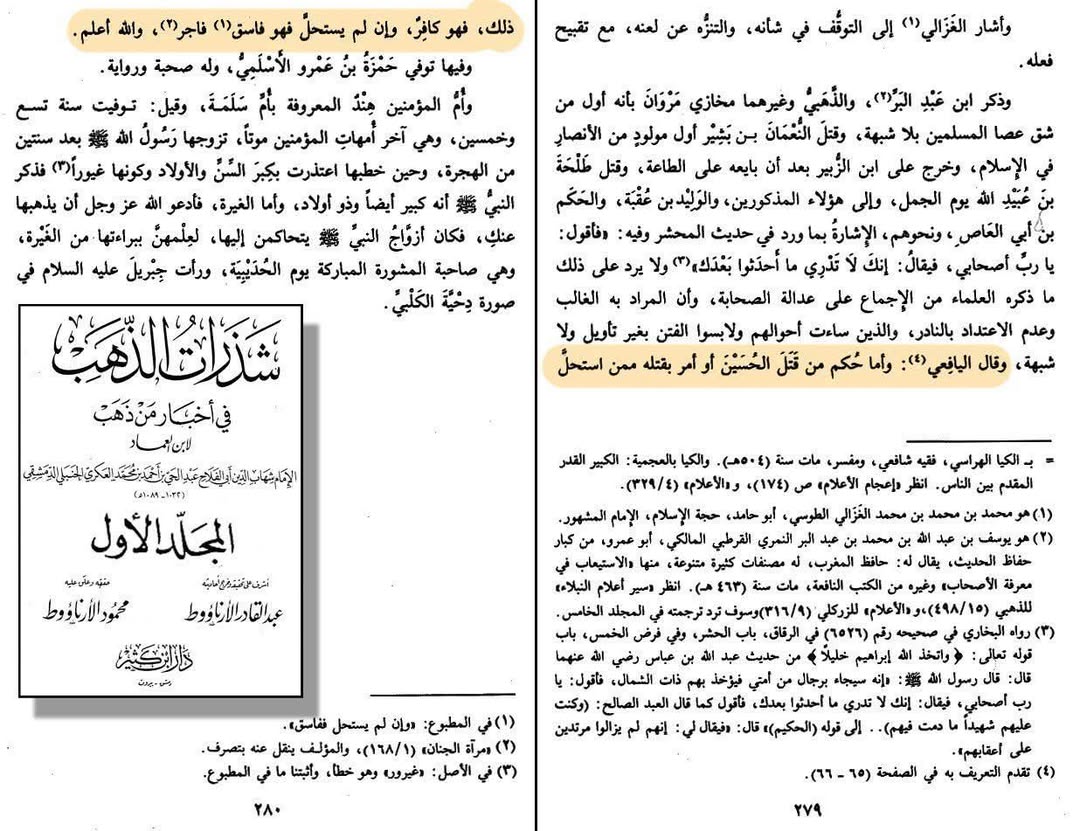 وأشار الغَزالي (١) إلى التوقُّف في شأنه، والتنزُّه عن لعنه، مع تقبيح
فعله.
وذكر ابن عَبْدِ البَرِّ(٢)، والذَّهَبيُّ وغيرهما مخازي مَرْوَانَ بأنه أول من
شق عصا المسلمين بلا شبهة، وقتلَ النُّعْمَانَ بن بَشِيْر أول مولودٍ من الأنصارِ
في الإسلام، وخرج على ابن الزُّبير بعد أن بايعه على الطاعة، وقتل طَلْحَةَ
بنَ عُبَيْدِ الله يوم الجمل، وإلى هؤلاء المذكورين، والوَلِيْد بن عُقْبَة، والحَكَم
بن أبي العَاص، ونحوهم، الإشارةُ بما ورد في حديث المحشر وفيه: «فأقول:
يا ربِّ أصحابي، فيقالُ: إنكَ لَا تَدْرِي ما أَحدَثوا بَعْدَك»(٣) ولا يرد على ذلك
ما ذكره العلماء من الإجماع على عدالة الصحابة، وأن المراد به الغالب
وعدم الاعتداد بالنادر، والذين ساءت أحوالهم ولابسوا الفتن بغير تأويل ولا
شبهة، وقال اليافِعي(٤): وأما حُكم من قَتَلَ الحُسَيْنَ أو أمر بقتله ممن استحلَّ
= بـ الكيا الهراسي، فقيه شافعي، ومفسر، مات سنة (٥٠٤هـ). والكيا بالعجمية: الكبير القدر
المقدم بين الناس. انظر «إعجام الأعلام» ص (١٧٤)، و «الأعلام» (٣٢٩/٤).
(١) هو محمد بن محمد بن محمد الغَزالي الطوسي، أبو حامد، حجة الإسلام، الإمام المشهور.
(٢) هو يوسف بن عبد الله بن محمد بن عبد البر النمري القرطبي المالكي، أبو عمرو، من كبار
حفاظ الحديث، يقال له: حافظ المغرب، له مصنفات كثيرة متنوعة، منها «الاستيعاب في
معرفة الأصحاب» وغيره من الكتب النافعة، مات سنة (٤٦٣ هـ). انظر «سير أعلام النبلاء»
للذهبي (٤٩٨/١٥)، و «الأعلام» للزركلي (٣١٦/٩) وسوف ترد ترجمته في المجلد الخامس.
(٣) رواه البخاري في صحيحه رقم (٦٥٢٦) في الرقاق، باب الحشر، وفي فرض الخمس، باب
قوله تعالى: ﴿واتخذ الله إبراهيم خليلًا﴾ من حديث عبد الله بن عباس رضي الله عنهما
قال: قال رسول الله ﷺ: «إنه سيجاء برجال من أمتي فيؤخذ بهم ذات الشمال، فأقول: يا
رب أصحابي، فيقال: إنك لا تدري ما أحدثوا بعدك، فأقول كما قال العبد الصالح: (وكنت
عليهم شهيداً ما دمت فيهم).. إلى قوله (الحكيم)» قال: «فيقال لي: إنهم لم يزالوا مرتدين
على أعقابهم».
(٤) تقدم التعريف به في الصفحة (٦٥ - ٦٦).
٢٧٩
ذلك، فهو كافِرٌ، وإن لم يستحلَّ فهو فاسق(١) فاجر(٢)، والله أعلم.
وفيها توفي حَمْزَةُ بنُ عَمْرو الأَسْلَمِيُّ، وله صحبة ورواية.
وأُمُّ المؤمنين هِنْدُ المعروفة بأُمِّ سَلَمَةَ، وقيل: توفيت سنة تسع
وخمسين، وهي آخر أُمهاتِ المؤمنين موتاً، تزوجها رَسُولُ الله ﷺ بعد سنتين
من الهجرة، وحين خطبها اعتذرت بكِبَرَ السِّنِّ والأولاد وكونها غيوراً(٣) فذكر
النبيُّ ﷺ أنه كبير أيضاً وذو أولاد، وأما الغيرة، فأدعو الله عز وجل أن يذهبها
عنكِ، فكان أزوَّاجُ النبيِّ ﷺ يتحاكمن إليها، لعِلْمهنَّ ببراءتها من الغَيْرة،
وهي صاحبة المشورة المباركة يوم الحُدَيْبِيَة، ورأت جِبْريلَ عليه السلام في
صورة دِحْيَّةَ الكَلْبيِّ.
شَذَرَاتُ الذَّهَب
في أخبار مَنْ ذَهَبَ
لابن العماد
الإمام شهاب الدين أبي الفلاح عبد الحي بن أحمد بن محمد العكري الحنبلي الدمشقي
(١٠٣٢ - ١٠٨٩ هـ)
المجلّد الأول
أشرف على تحقيقه وخرج أحاديثه
عبد القادر الأرناؤوط
حققه وعلق عليه
محمود الأرناؤوط
دار ابن كثير
دمشق - بيروت
(١) في المطبوع: «وإن لم يستحل ففاسق».
(٢) «مرآة الجنان» (١٦٨/١)، والمؤلف ينقل عنه بتصرف.
(٣) في الأصل: «غيرور» وهو خطأ، وأثبتنا ما في المطبوع.
٢٨٠